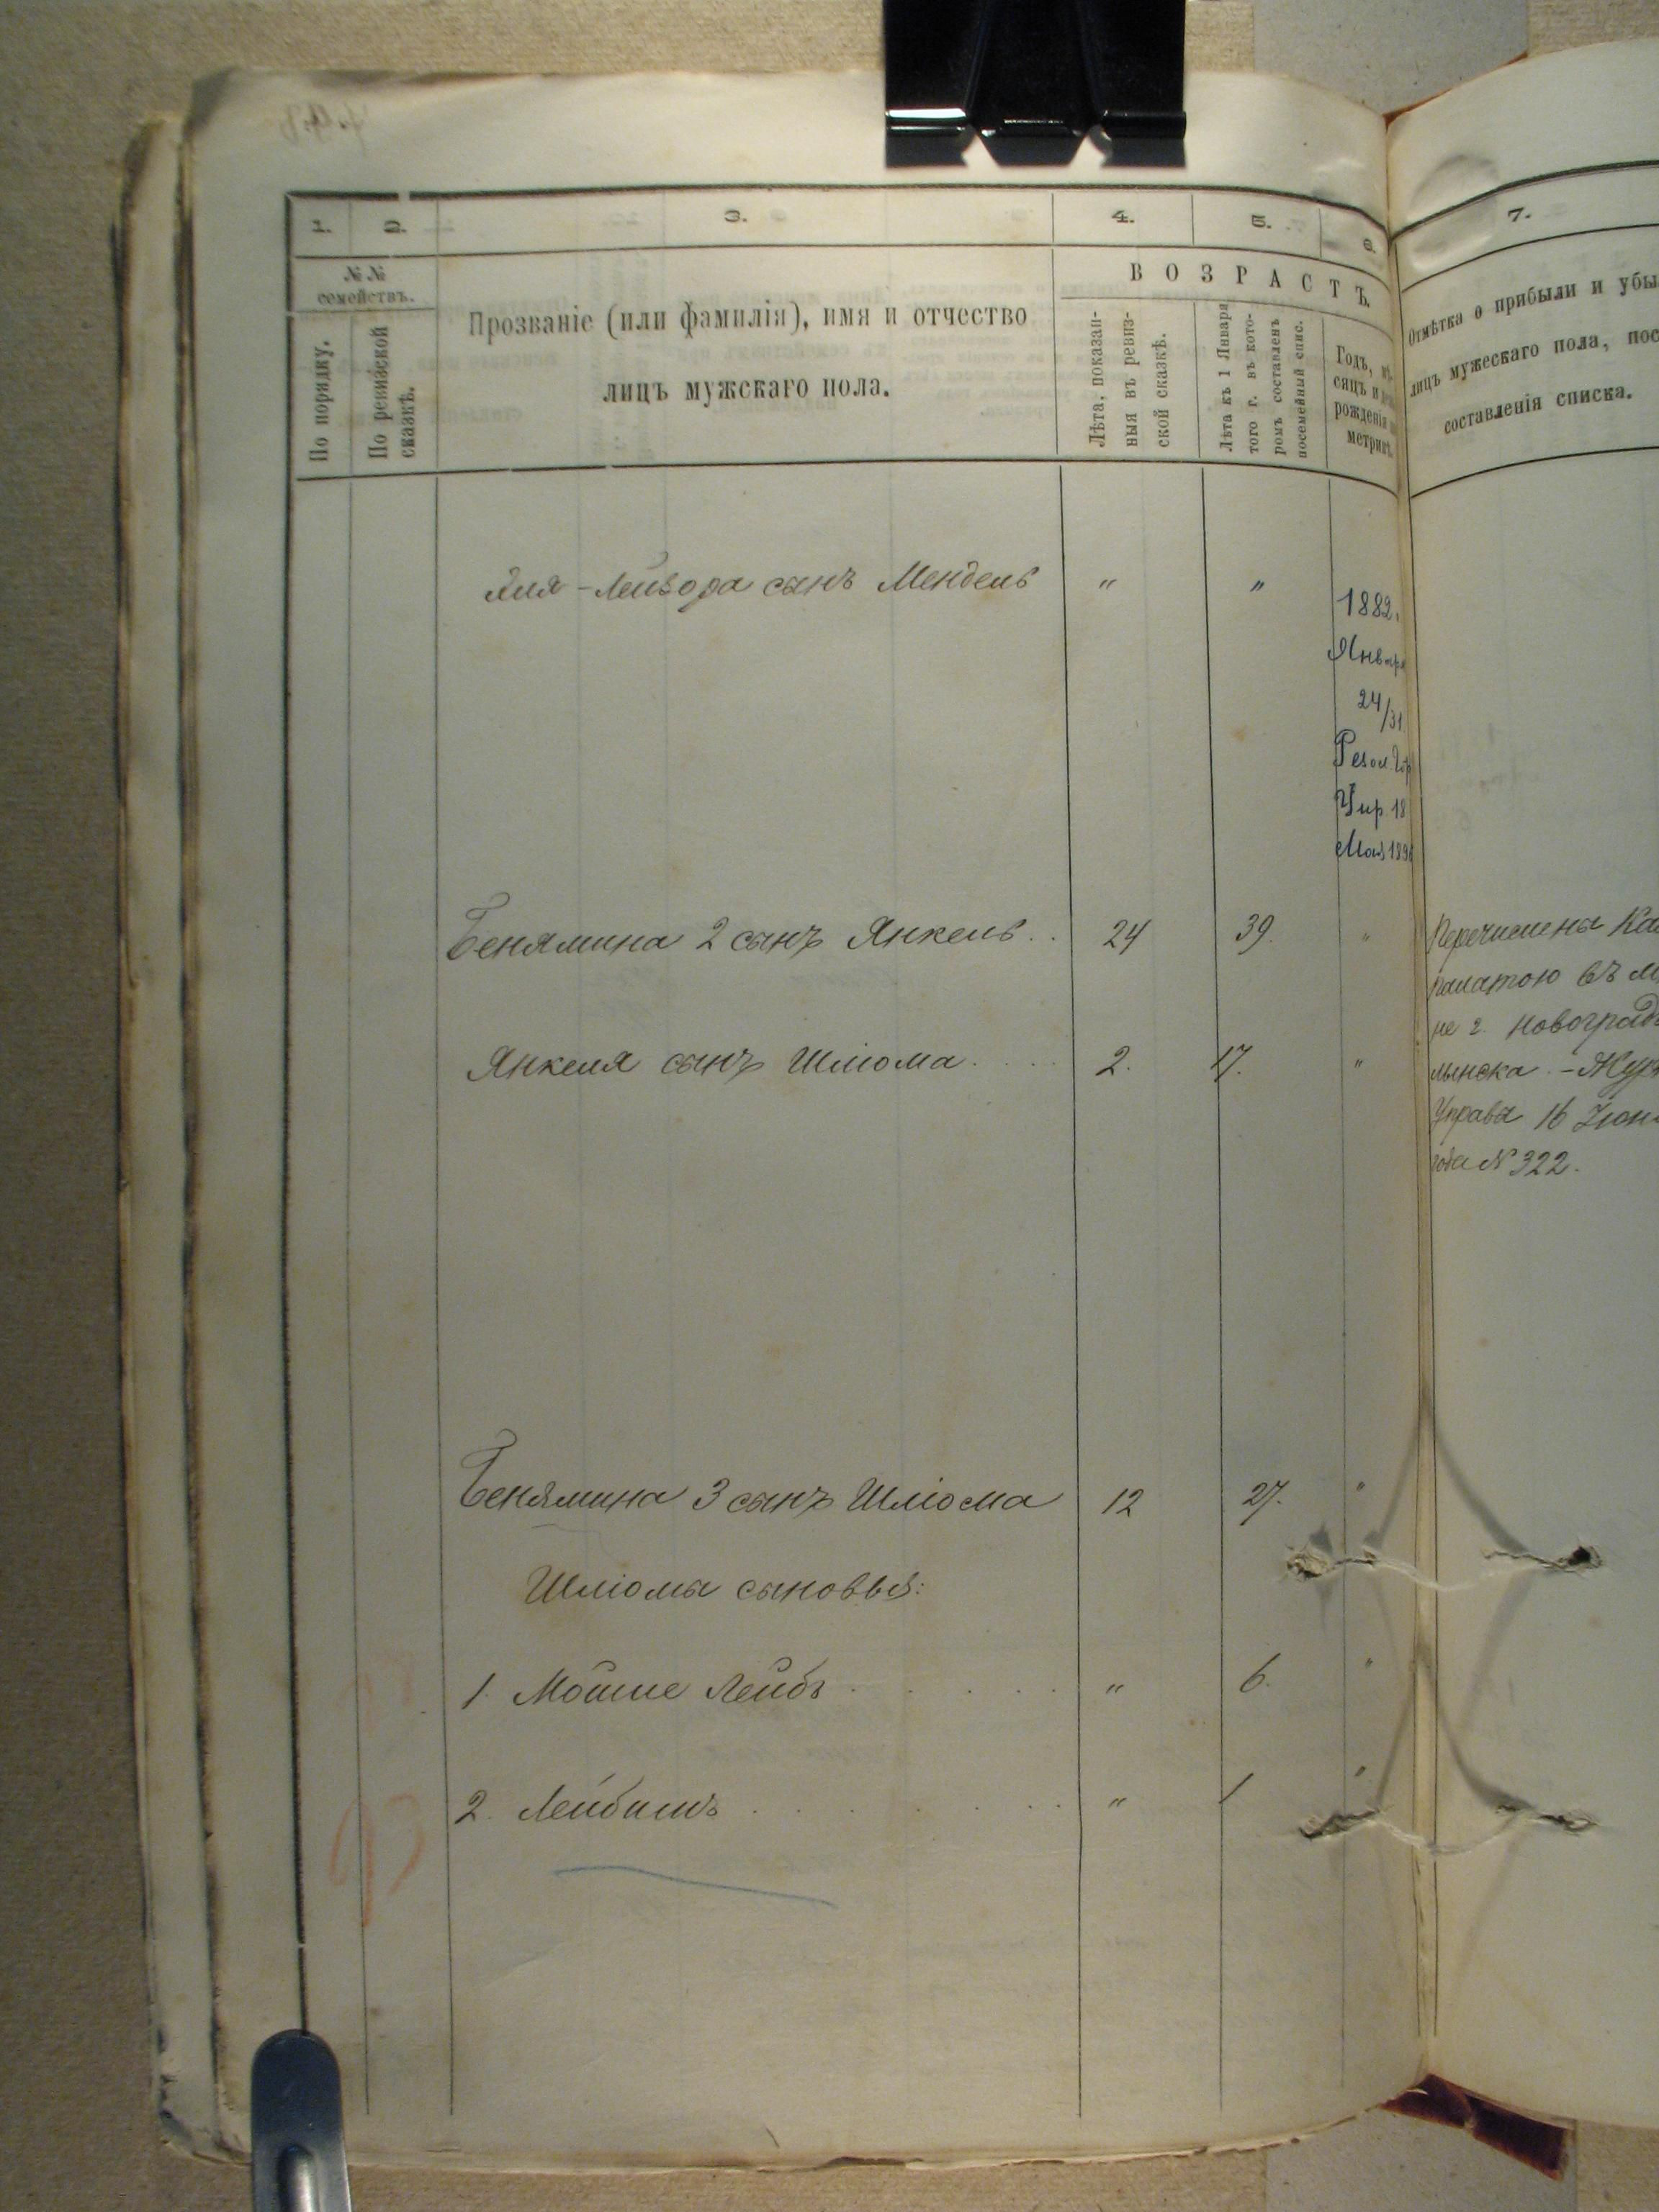 1.
2.
3.
4.
5.
6.
7.
№№ семействъ.
По порядку.
По ревизской сказкѣ.
Прозваніе (или фамилія), имя и отчество
лицъ мужскаго пола.
ВОЗРАСТЪ.
Лѣта, показан-
ныя въ ревиз-
ской сказкѣ.
Лѣта къ 1 Января
того г. въ кото-
ромъ составленъ
посемейный спис.
Годъ, мѣ-
сяцъ и
рожденія
метрик
Отмѣтка о прибыли и убы
лицъ мужескаго пола, пос
составленія списка.
сынъ Мендель " "
1882.
Январ
24/31
18
Мая 189
Бенямина 2 сынъ Янкель . . 24 39. "
Янкеля сынъ Шліома . . . 2. 17. "
Перечислены Ка
палатою въ м
не г. Новоград
лынска - Жур
Управы 16 Іюн
года № 322.
Бенямина 3 сынъ Шліома 12 27. "
Шліомы сыновья:
1. Мойше Лейбъ . . . . . " 6. "
2. Лейбишъ . . . . . . . " 1 "